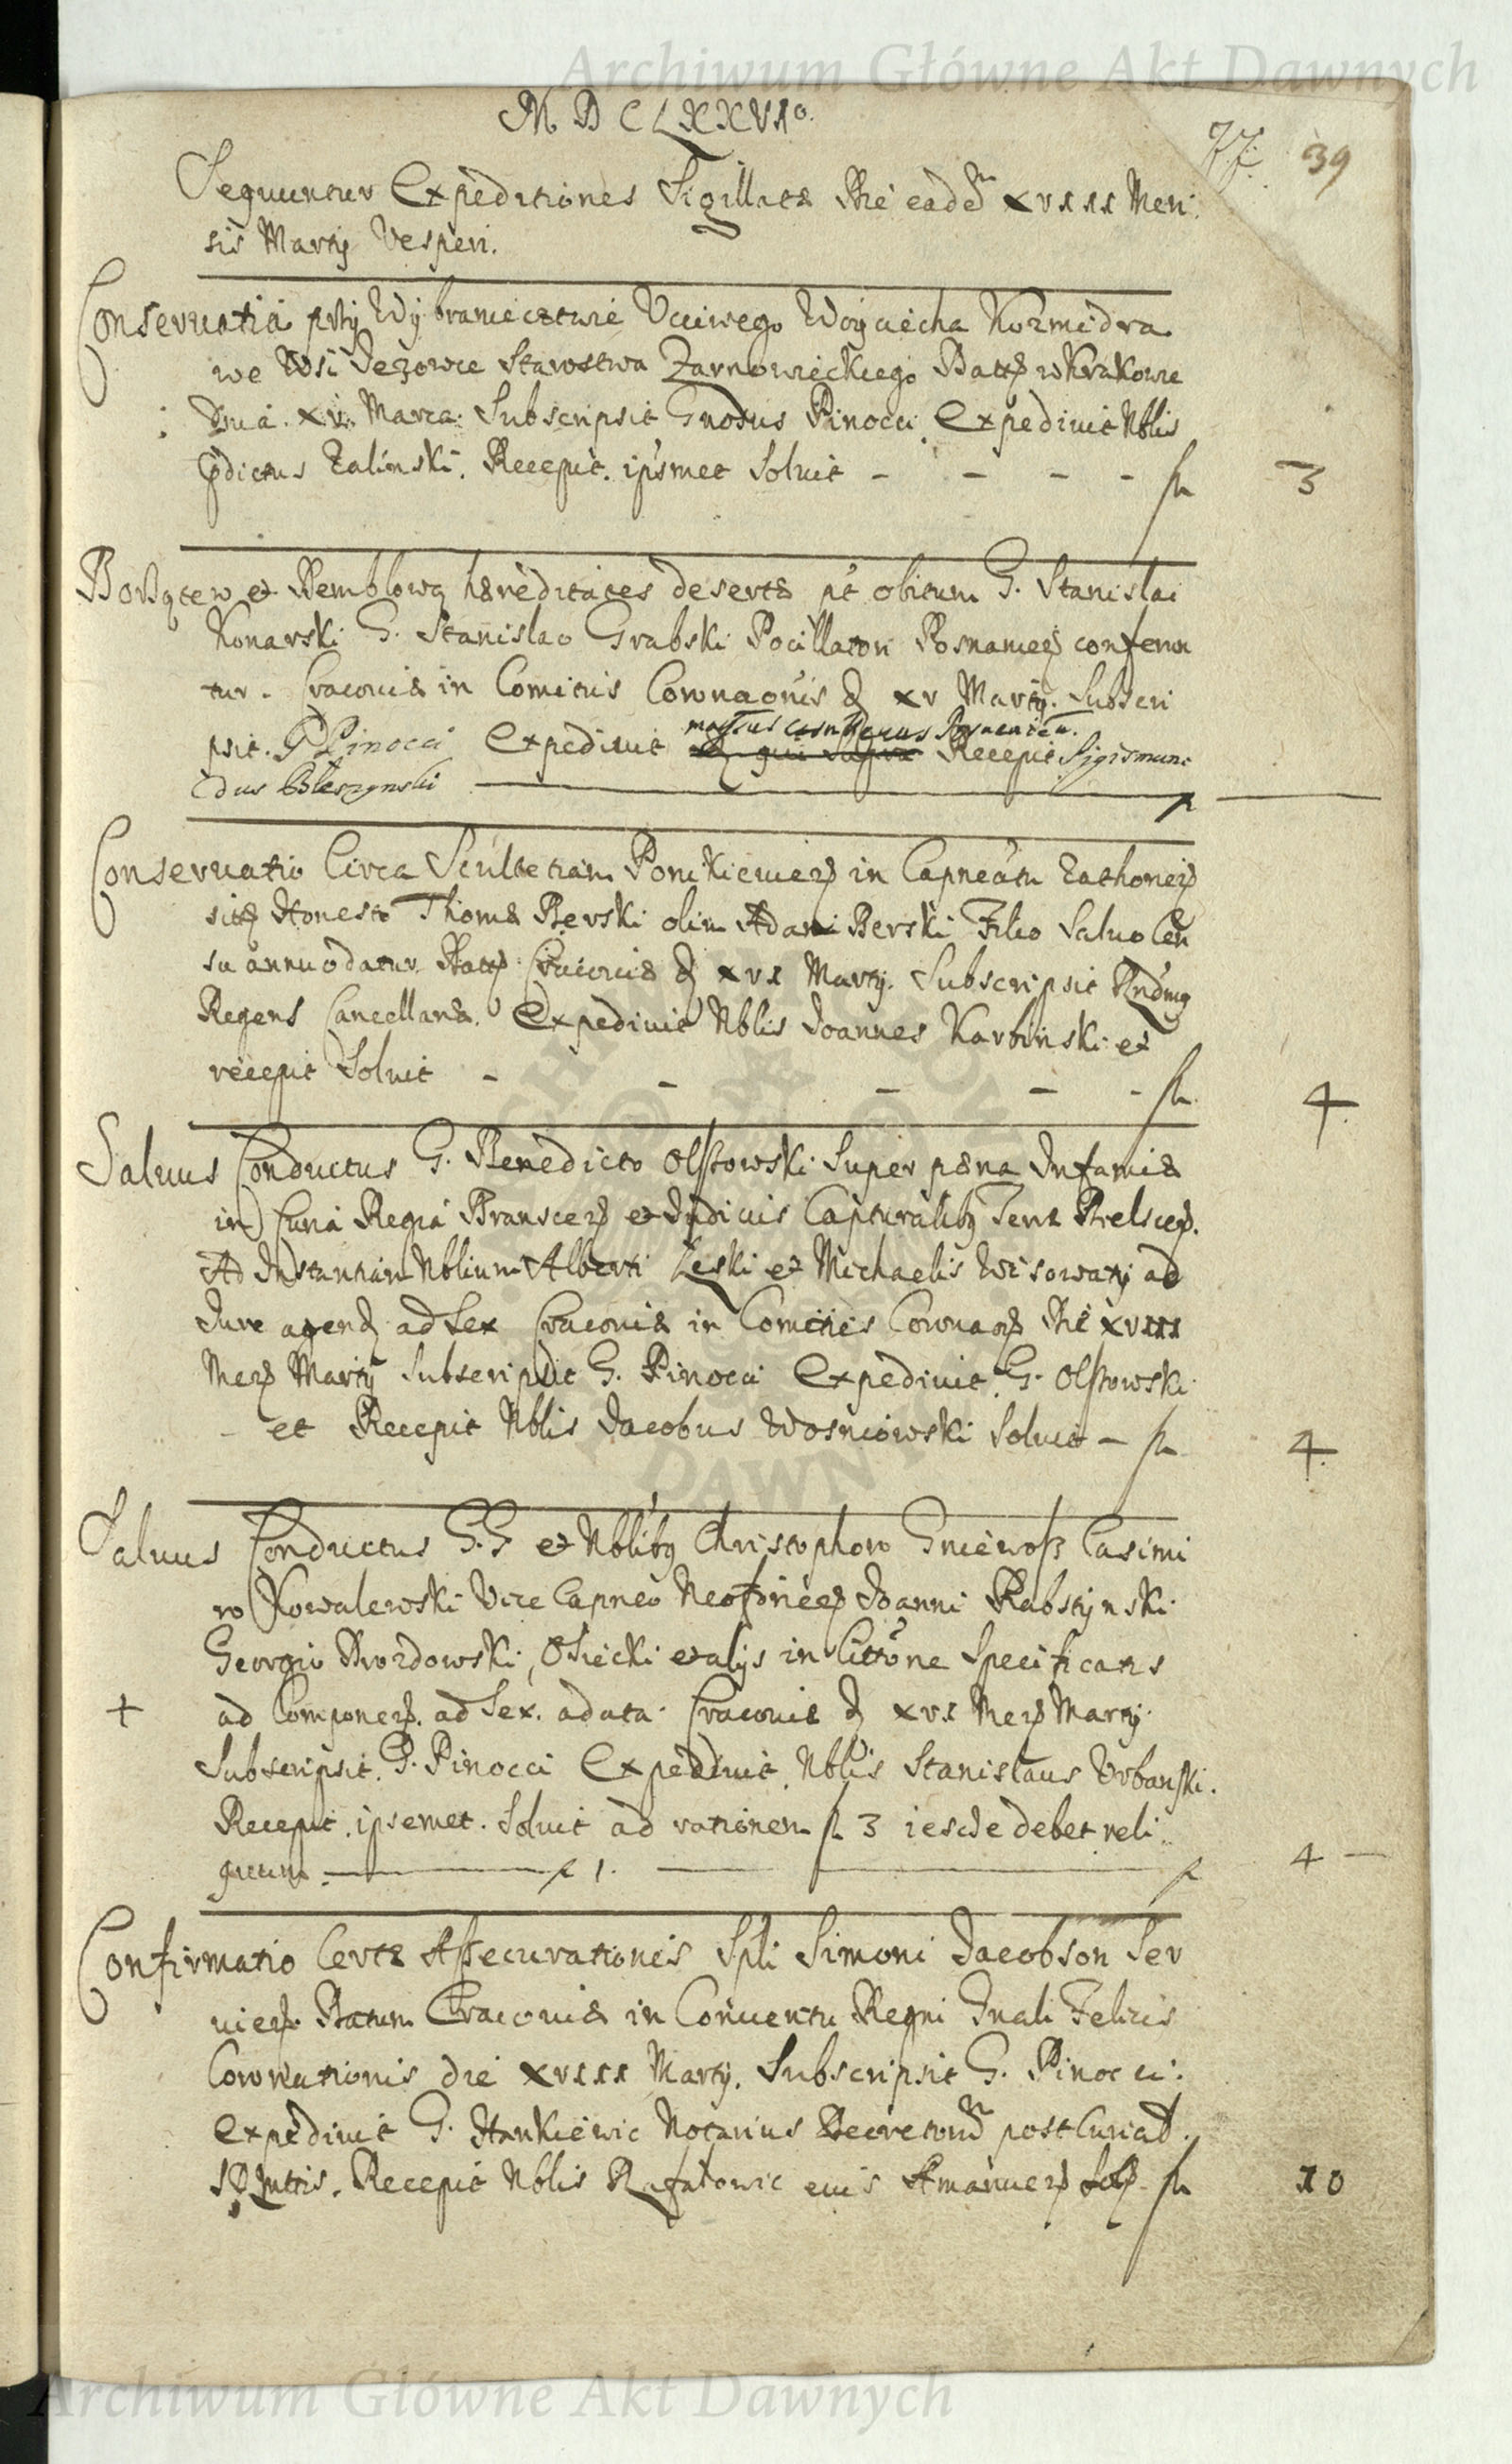 Archiwum Główne Akt Dawnych
M D C L X X V I o.
77. 39
Sequuntur Expeditiones Sigillatæ Die eadē XVIII Men:
sis Martij Vesperi.
Conservatia przy Wybraniecztwie Ucciwego Woyciecha Kozmidra
we Wsi Jezowce Starostwa Zarnowieckiego Datt w Krakowie
Dnia. XV. Marca. Subscripsit Gnosus Pinocci Expedivit Nblis
pdictus Zalinski. Recepit. ipsmet Solvit - - - - fl 3
et Remblowa hæreditates desertæ pt obitum G. Stanislai
Konarski G. Stanislao Grabski Pocillatori Posnanien conferun
tur. Cracoviæ in Comitiis Coronaonis D XV Martij. Subscri
psit. G Pinocci Expedivit Recepit Sigismun:
dus Bleszynski fl
Conservatio Circa Scultetiam Ponikievien in Capneatu Zathorien
sitæ Honesto Thomæ Berski olim Adami Berski Filio Salvo Cen
su annuo datur. Datt Cracoviæ D XVI Martij. Subscripsit Rndmg
Regens Cancellariæ. Expedivit Nblis Joannes Karbinski et
recepit Solvit - - - - - fl. 4
Salvus Conductus G. Benedicto Olszowski Super pæna Infamiæ
in Curia Regia Branscen et Judiciis Capturalibg Terræ Bielscen.
Ad Instantiam Nblium Alberti Leski et Michaelis Wisowaty ad
Jure agend ad Sex Cracoviæ in Comitiis Coronaon Die XVIII
Men Martij Subscripsit G. Pinocci Expedivit G. Olszowski
- et Recepit Nblis Jacobus Wosniowski Solvit - fl 4.
Salvus Conductus G.G et Nblibg Christophoro Gniewosz Casimi
ro Kowalewski Vice Capneo Joanni Rabsztynski
Georgio Drozdowski, Osiecki et alijs in Littone Specificatis
+ ad Componen. ad Sex. adata. Cracoviæ D XVI Men Martij.
Subscripsit. G. Pinocci Expedivit. Nblis Stanislaus Urbanski.
Recepit. ipsemet. Solvit ad rationem fl 3 iescze debet reli
quum. fl 1. fl 4 -
Confirmatio Certæ Assecurationis Spli Simoni Jacobson Ser
vien. Datum Cracoviæ in Conventu Regni Gnali Felicis
Coronationis die XVIII Martij. Subscripsit G. Pinocci.
Expedivit G. Hankiewic Notarius post Curiad.
Recepit Nblis Rafalowic eius Amanuen fl 10
Archiwum Główne Akt Dawnych